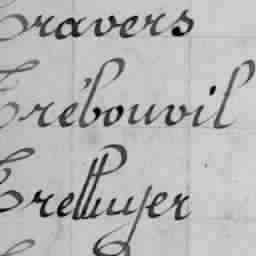 Travers
Trébouvil
Trelluyer